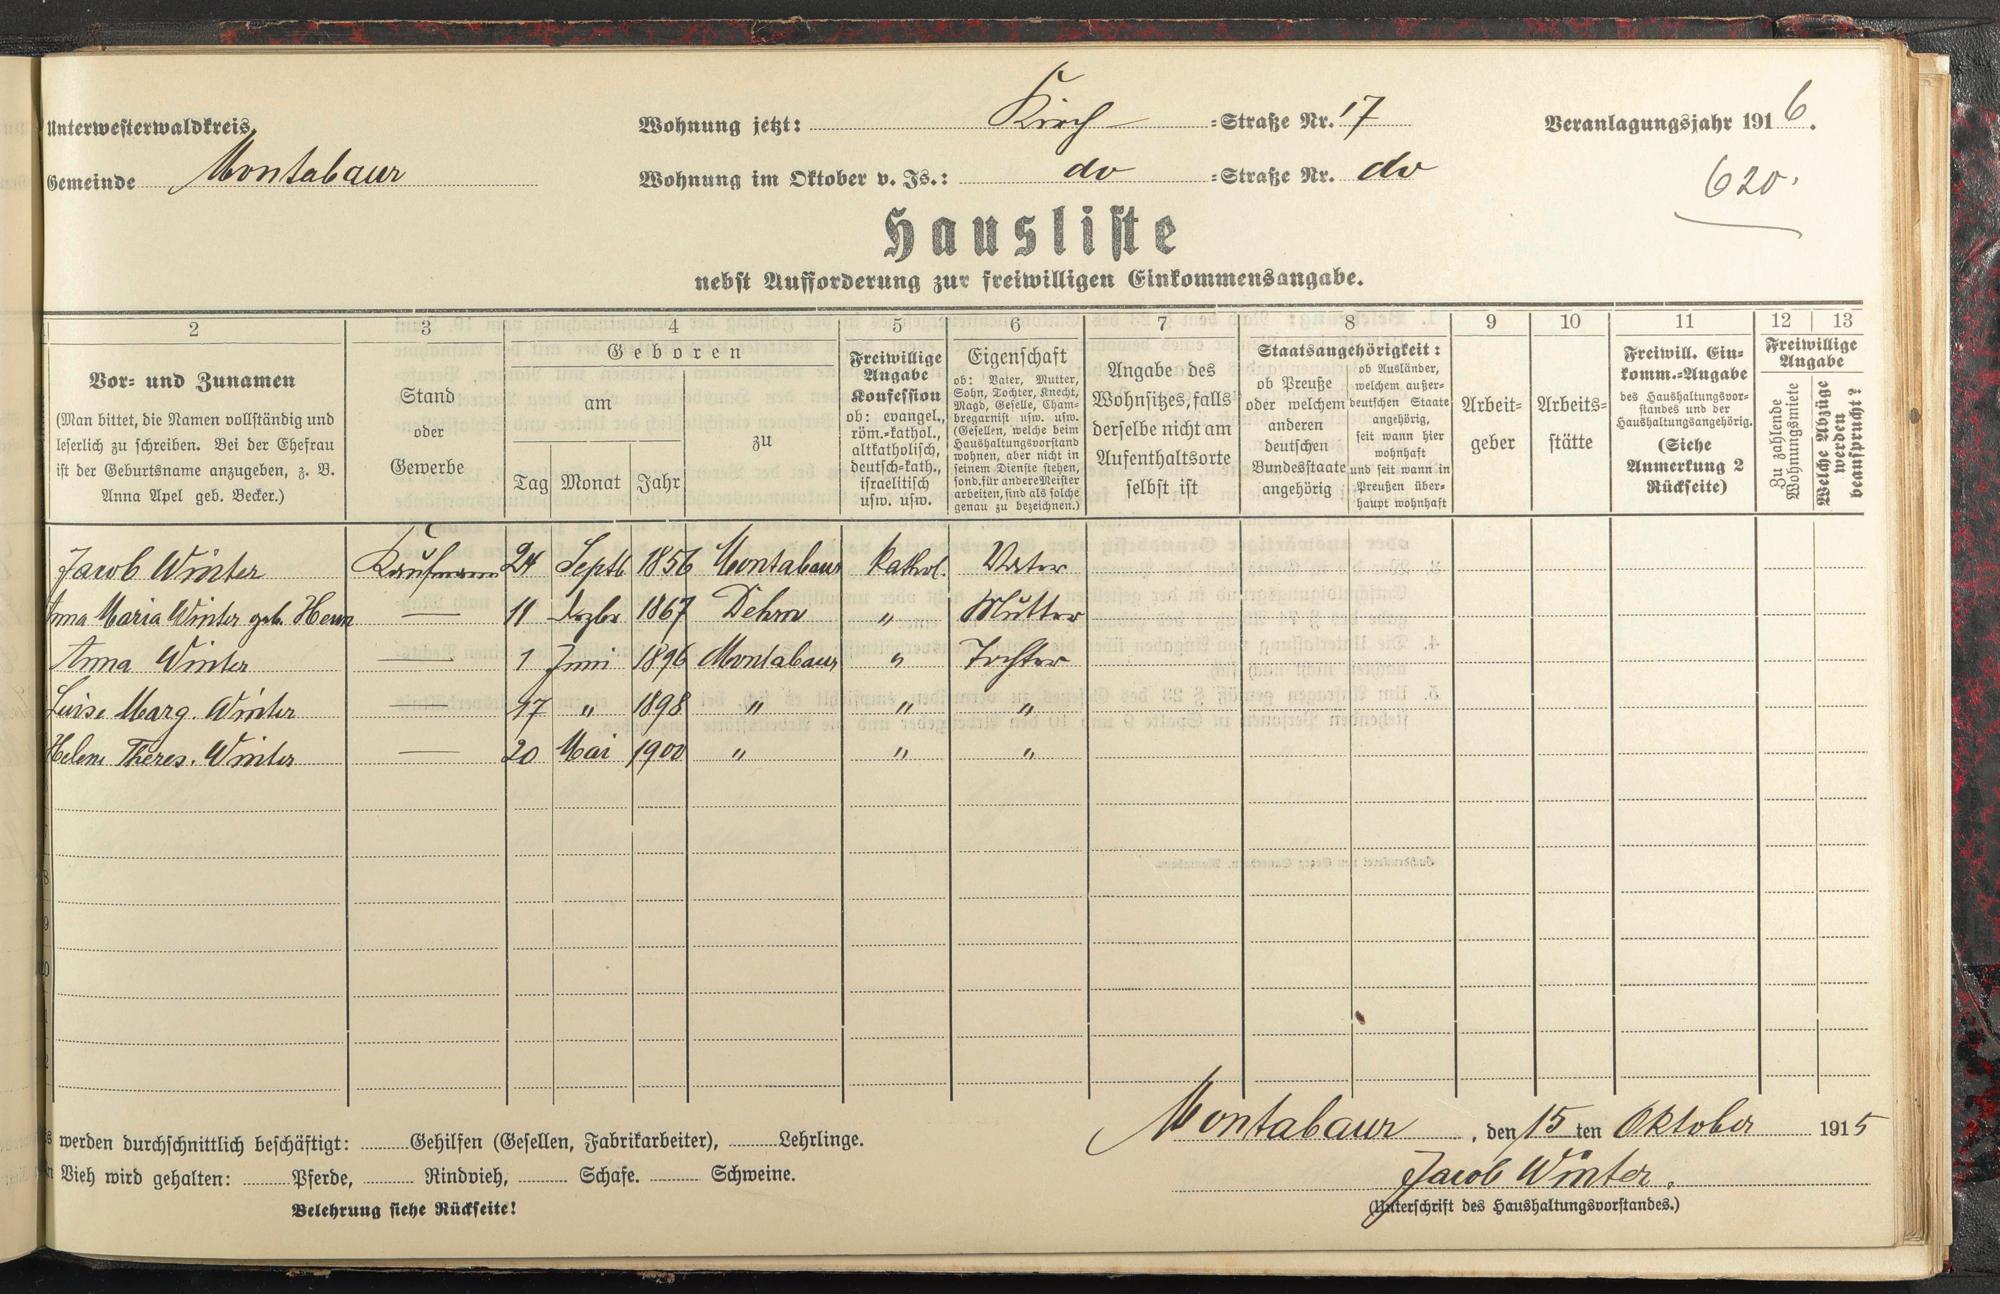 Unterwesterwaldkreis
Wohnung jetzt: Kirch =Straße Nr. 17
Veranlagungsjahr 1916.
Gemeinde Montabaur
Wohnung im Oktober v. Js.: do =Straße Nr. do
620.
Hausliste
nebst Aufforderung zur freiwilligen Einkommensangabe.
2 3 4 5 6 7 8 9 10 11 12 13
Vor- und Zunamen
(Man bittet, die Namen vollständig und
leserlich zu schreiben. Bei der Ehefrau
ist der Geburtsname anzugeben, z. B.
Anna Apel geb. Becker.)
Stand
oder
Gewerbe
Geboren
am
Tag Monat Jahr
zu
Freiwillige
Angabe
Konfession
ob: evangel.,
röm.-kathol.,
altkatholisch,
deutsch-kath.,
israelitisch
usw. usw.
Eigenschaft
ob: Vater, Mutter,
Sohn, Tochter, Knecht,
Magd, Geselle, Cham-
bregarnist usw. usw.
(Gesellen, welche beim
Haushaltungsvorstand
wohnen, aber nicht in
seinem Dienste stehen,
sond. für andere Meister
arbeiten, sind als solche
genau zu bezeichnen.)
Angabe des
Wohnsitzes, falls
derselbe nicht am
Aufenthaltsorte
selbst ist
Staatsangehörigkeit:
ob Preuße
oder welchem
anderen
deutschen
Bundesstaate
angehörig
ob Ausländer,
welchem außer-
deutschen Staate
angehörig,
seit wann hier
wohnhaft
und seit wann in
Preußen über-
haupt wohnhaft
Arbeit-
geber
Arbeits-
stätte
Freiwill. Ein-
komm.-Angabe
des Haushaltungsvor-
standes und der
Haushaltungsangehörig.
(Siehe
Anmerkung 2
Rückseite)
Freiwillige
Angabe
Zu zahlende
Wohnungsmiete
Welche Abzüge
werden
beansprucht?
Jacob Winter Kaufmann 24 Septb 1856 Montabaur kathol. Vater
Anna Maria Winter geb. Henn — 11 Dezbr 1867 Dehrn " Mutter
Anna Winter — 1 Juni 1896 Montabaur " Tochter
Luise Marg. Winter — 17 " 1898 " " "
Helene Theres. Winter — 20 Mai 1900 " " "
werden durchschnittlich beschäftigt: Gehilfen (Gesellen, Fabrikarbeiter), Lehrlinge.
Vieh wird gehalten: Pferde, Rindvieh, Schafe. Schweine.
Belehrung siehe Rückseite!
Montabaur, den 15 ten Oktober 1915
Jacob Winter.
(Unterschrift des Haushaltungsvorstandes.)